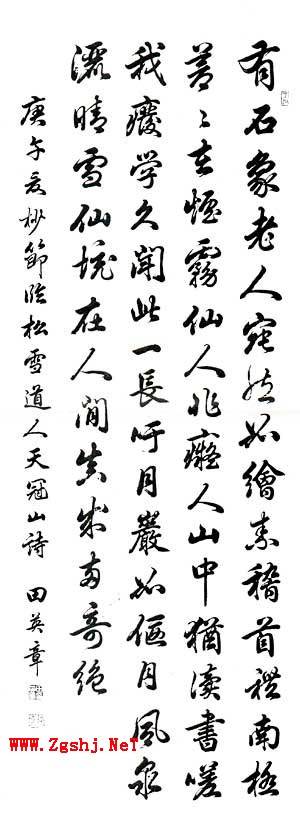 有石象老人宛然如繪素稽首禮南極
蒼〻在煙霧仙人非癡人山中猶讀書嗟
我廢學久聞此一長吁月巖如偃月風泉
灑晴雪仙境在人間真成兩奇絕
庚午夏杪節臨松雪道人天冠山詩 田英章
www.Zgshj.NeT